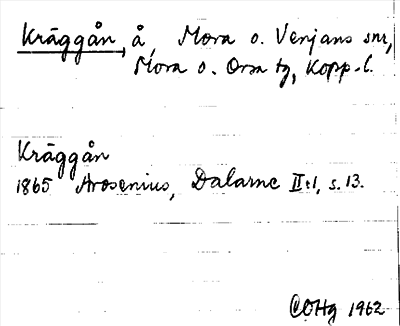 Kräggån, å, Mora o. Venjans snr,
Mora o. Orsa tg, Kopp. l.
Kräggån
1865 Arosenius, Dalarne II:1, s. 13.
COHg 1962